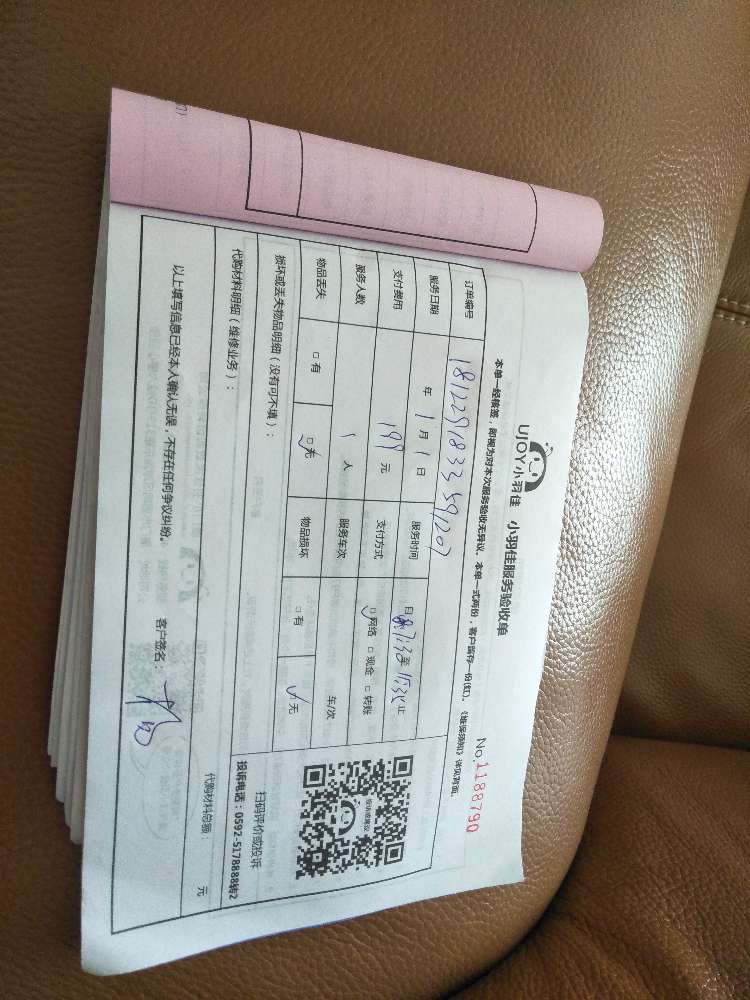 UJOY小羽佳 小羽佳服务验收单
No.1188790
本单一经核签，即视为对本次服务验收无异议。本单一式两份，客户留存一份(红)。《维保须知》详见背面。
订单编号
服务日期 年 1 月 1 日 服务时间 自 至 止
支付费用 199 元 支付方式 □网络 □现金 □转账
服务人数 1 人 服务车次 车/次
物品丢失 □有 □无 物品损坏 □有 □无
损坏或丢失物品明细（没有可不填）：
代购材料明细（维修业务）：
扫码评价或投诉
投诉电话：0592-5178888转2
代购材料总额： 元
以上填写信息已经本人确认无误，不存在任何争议纠纷。 客户签名：